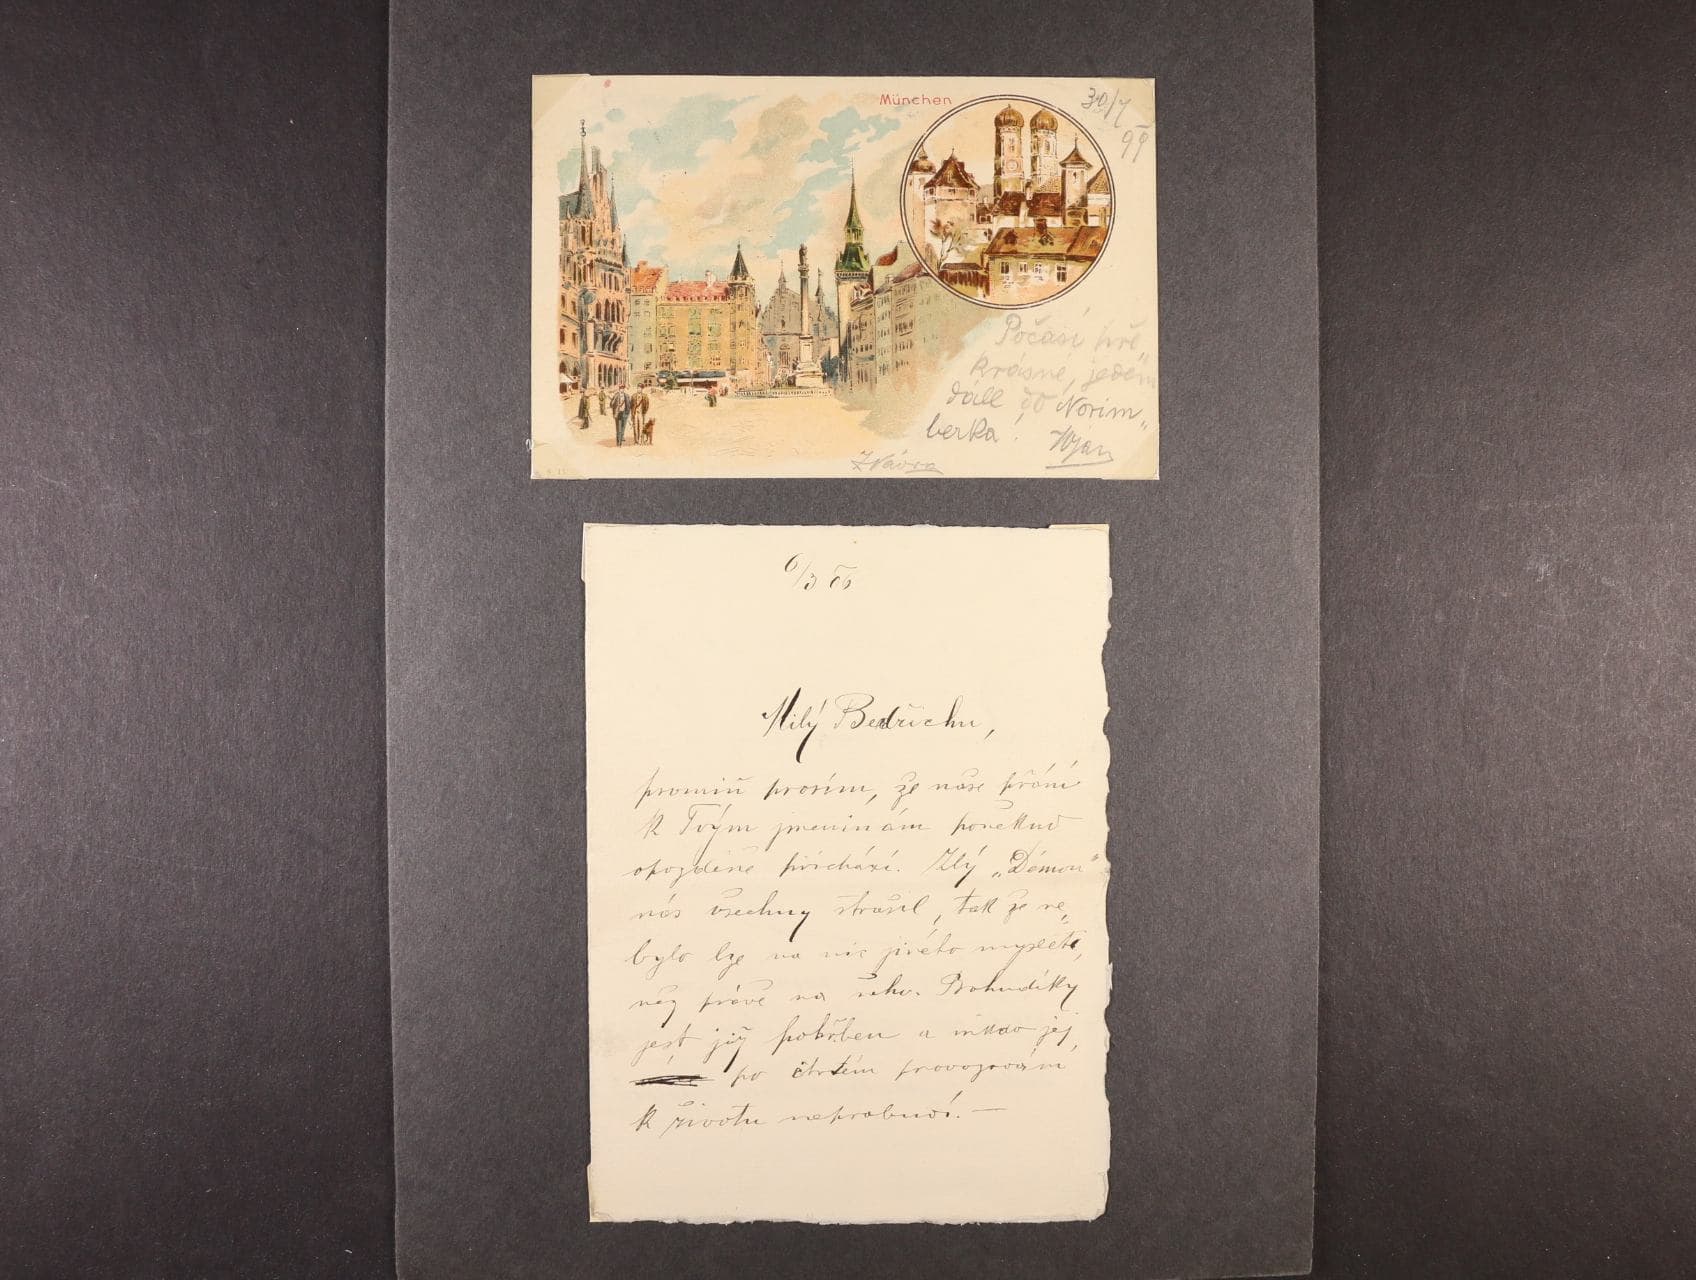 München
30/7
99
Počasí pře
krásné, jedem
dále do Norim„
berka!
6/3 06
Milý Bedřichu,
promiň prosím, že naše přání
k Tvým jmeninám poněkud
opozděně přichází. Zlý „Démon“
nás všechny strašil, tak že ne„
bylo lze na nic jiného mysleti,
než právě na něho. Bohudíky
jest již pohřben a nikdo jej
po čtvrtém provozování
k životu neprobudí. —